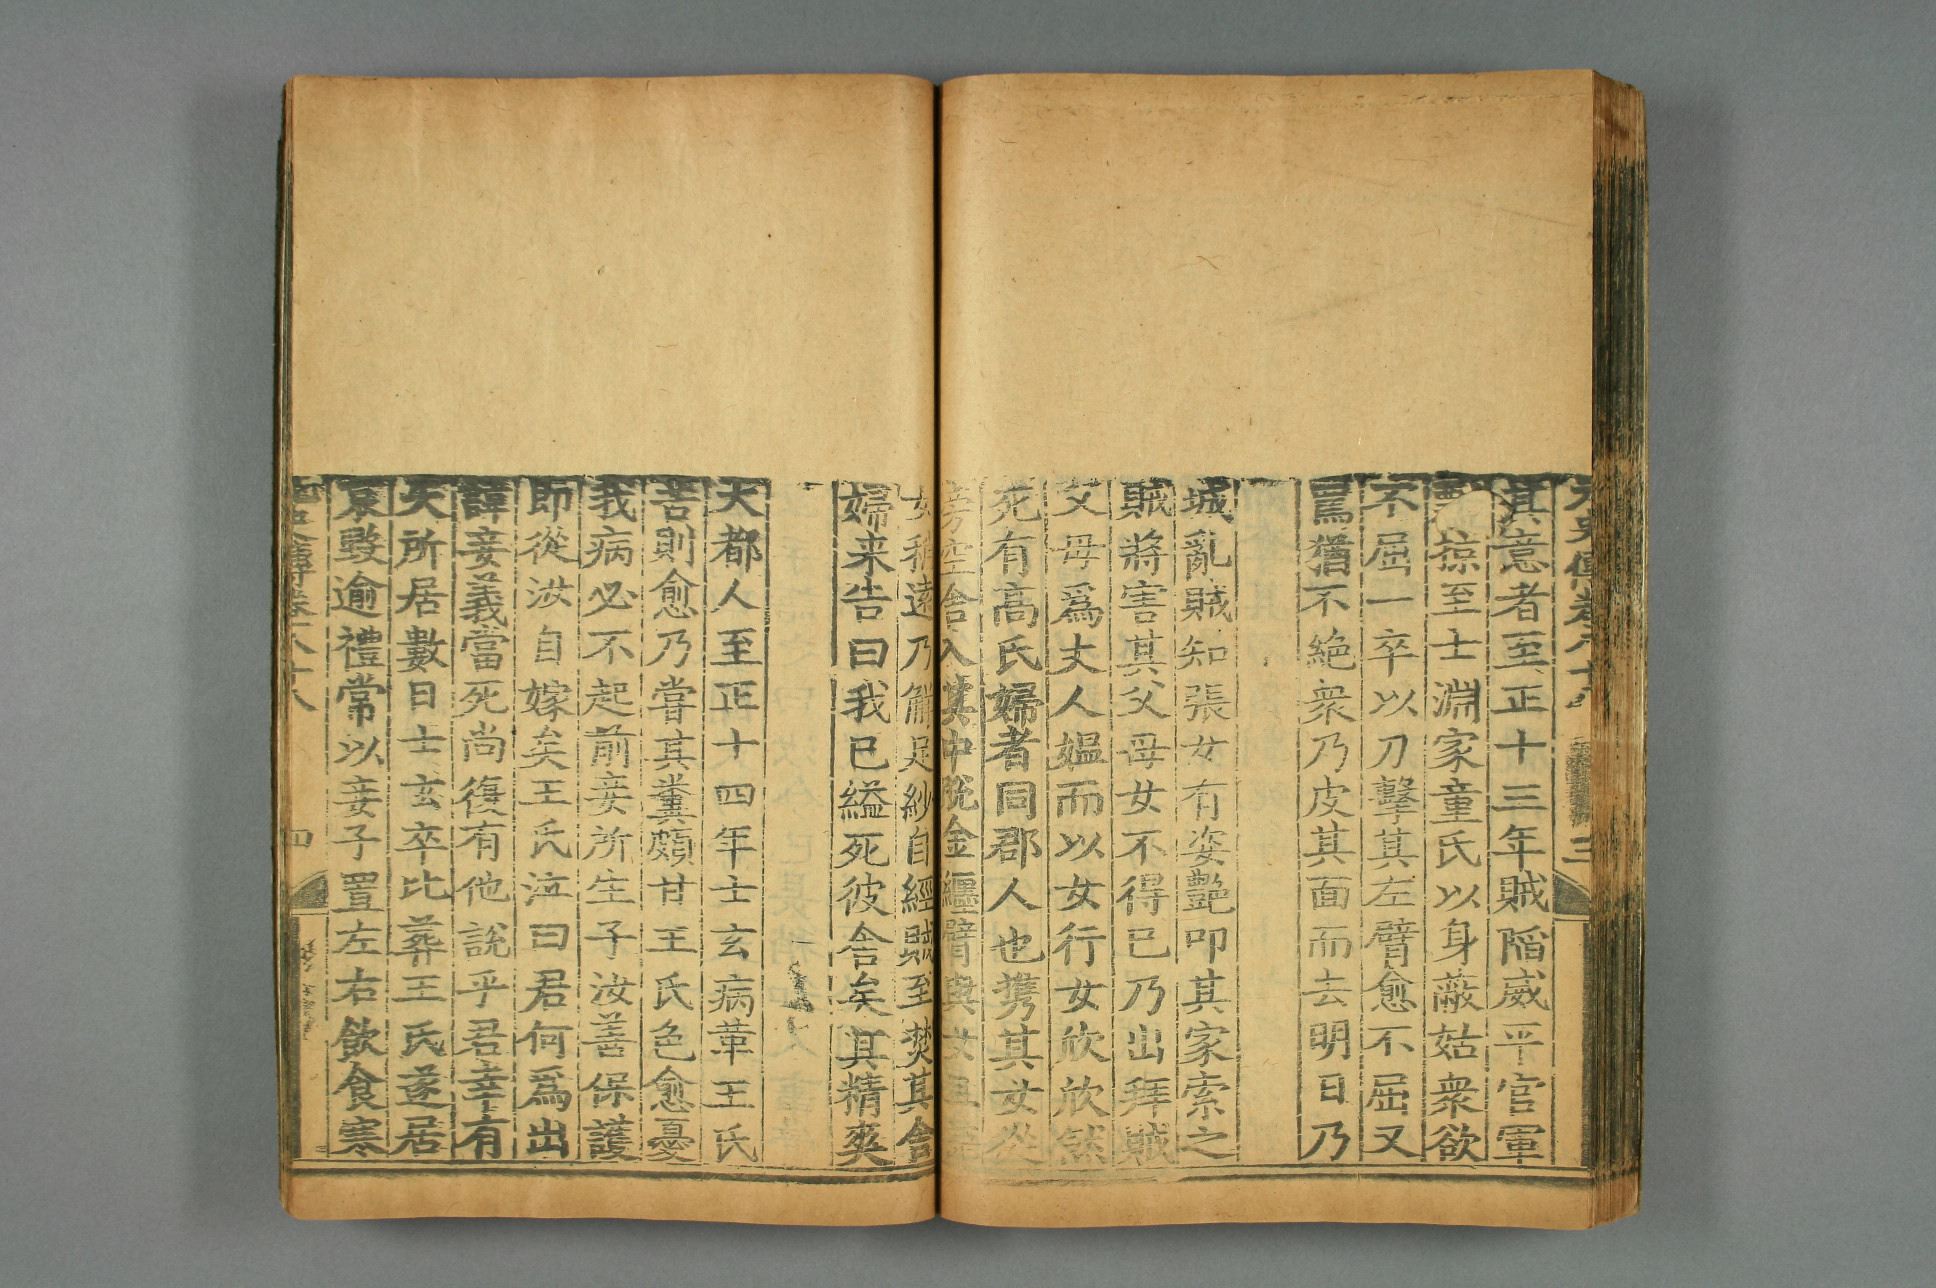 元史傳卷八十八 三
其意者至正十三年賊陷威平官軍
掠至士淵家童氏以身蔽姑衆欲
不屈一卒以刀擊其左臂愈不屈又
罵猶不絶衆乃皮其面而去明日乃
城亂賊知張女有姿艶叩其家索之
賊將害其父母女不得已乃出拜賊
父母爲丈人媼而以女行女欣欣然
死有高氏婦者同郡人也携其女從
旁空舍入其中脱金纏臂與女且
女稍遠乃解足紗自經賊至焚其舍
婦来告曰我已縊死彼舍矣其精爽
大都人至正十四年士玄病革王氏
苦則愈乃嘗其糞頗甘王氏色愈憂
我病必不起前妾所生子汝善保護
即從汝自嫁矣王氏泣曰君何爲出
諱妾義當死尚復有他說乎君幸有
夫所居數日士玄卒比葬王氏遂居
哀毀逾禮常以妾子置左右飲食寒
元史傳卷八十八 四